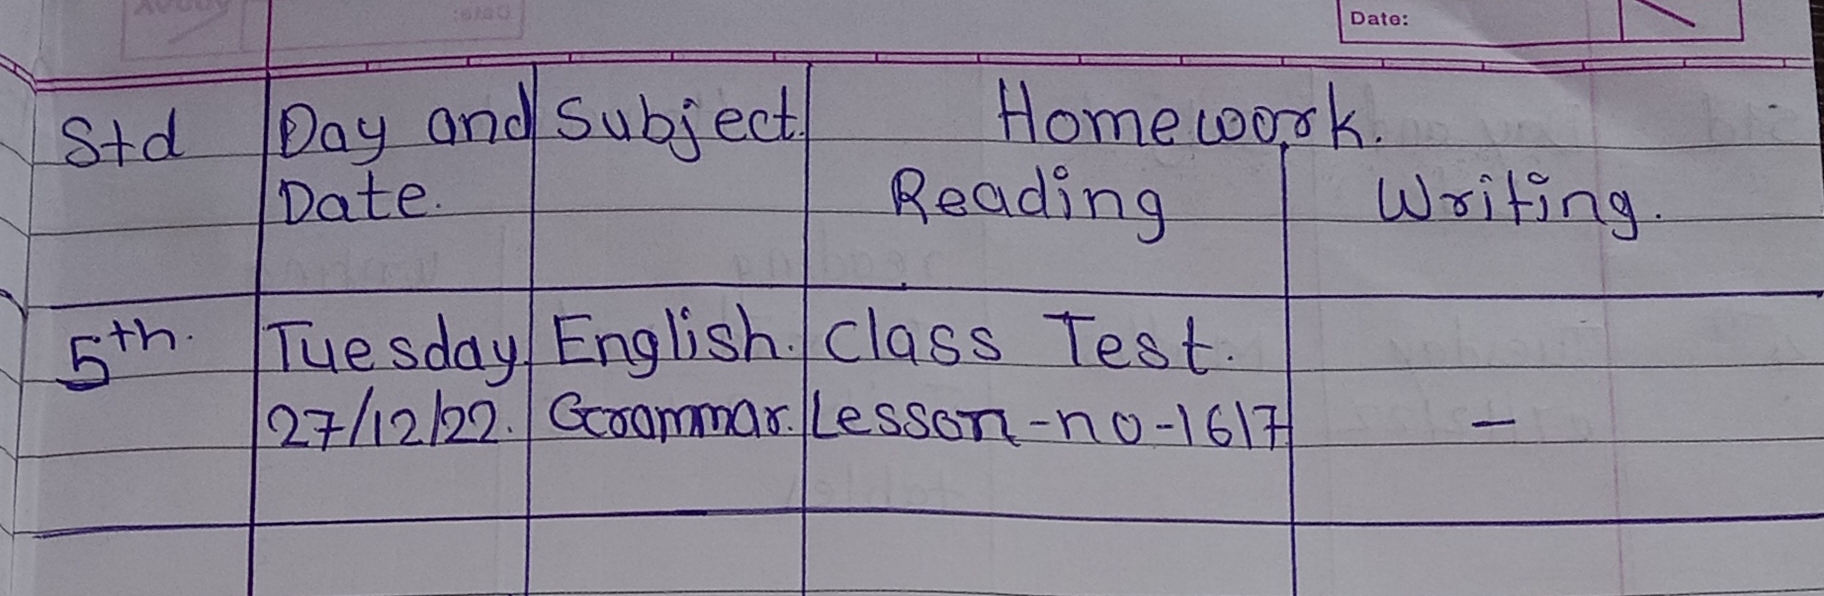 Date:
Std Day and Subject. Homework.
Date. Reading Writing.
5th. Tuesday. English. Class Test.
27/12/22. Grammar. Lesson-no-1617 -